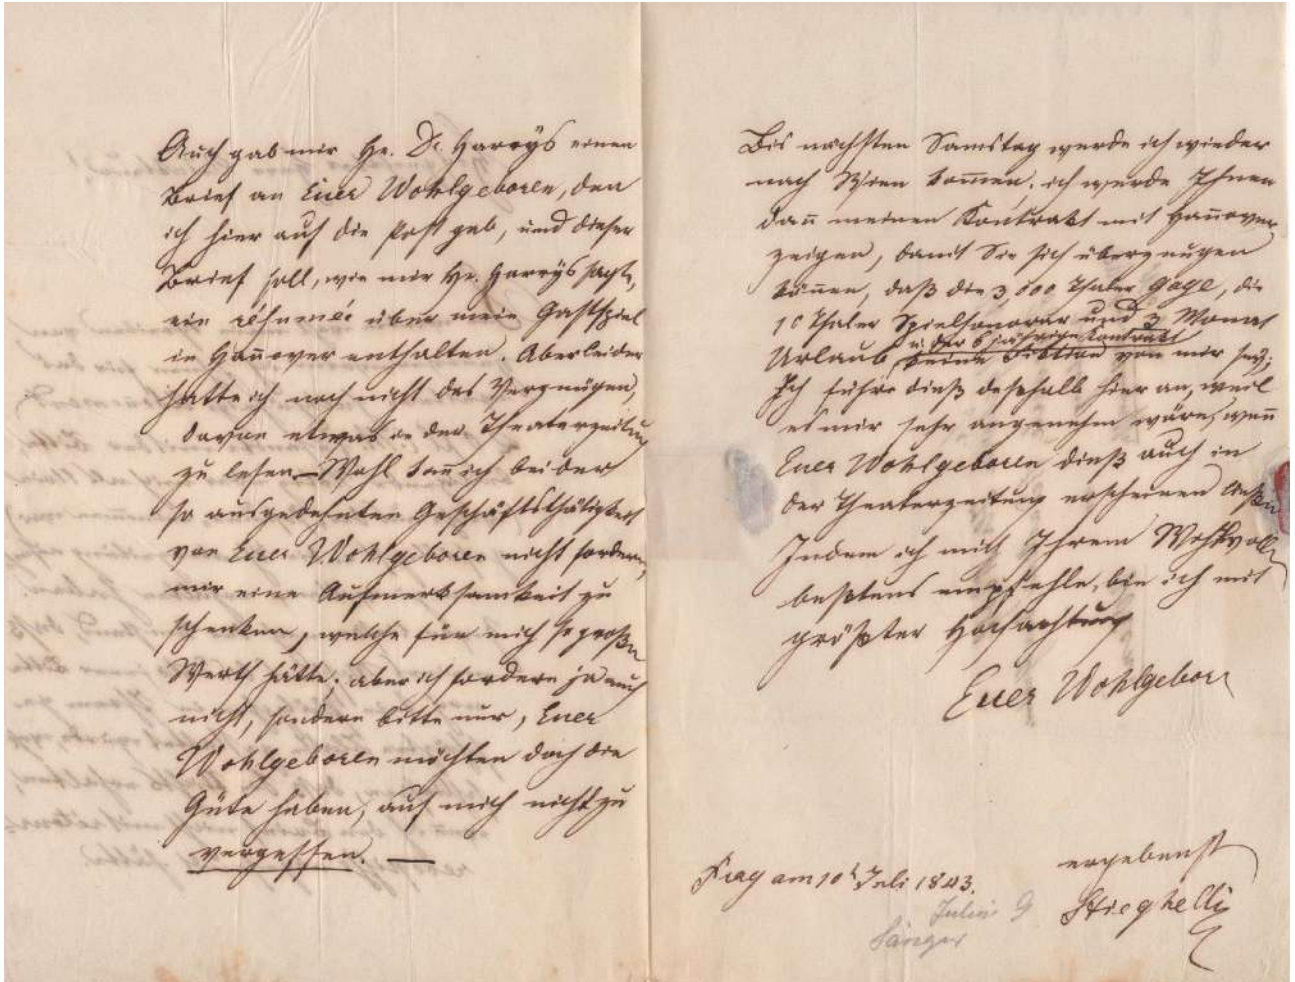 Auch gab mir Hr. Dr. Harrÿs einen
Brief an Euer Wohlgeboren, den
ich hier auf die Post gab, und dieser
Brief soll, wie mir Hr. Harrÿs sagte,
ein résumée über mein Gastspiel
in Hañover enthalten. Aber leider
hatte ich noch nicht das Vergnügen,
davon etwas in der Theaterzeitung
zu lesen. – Wohl kañ ich bei der
so ausgedehnten Geschäftsthätigkeit
von Euer Wohlgeboren nicht fordern,
mir eine Aufmerksamkeit zu
schenken, welche für mich so großen
Werth hätte; aber ich fordere ja auch
nicht, sondern bitte nur, Euer
Wohlgeboren möchten doch die
Güte haben, auf mich nicht zu
vergessen. —
Bis nächsten Samstag werde ich wieder
nach Wien kom̄en. ich werde Ihnen
dañ meinen Kontrakt mit Hañover
zeigen, damit Sie sich überzeugen
köñen, daß die 3,000 Thaler Gage, die
10 Thaler Spielhonorar und 3 Monat
u. der 6 jährige Kontrakt
Urlaub keine Fiktion von mir seÿ;
Ich führe dieß deßhalb hier an, weil
es mir sehr angenehm wäre, weñ
Euer Wohlgeboren dieß auch in
der Theaterzeitung erscheinen ließen
Indem ich mich Ihrem Wohlwollen
bestens empfehle, bin ich mit
größter Hochachtung
Euer Wohlgeboren
ergebenst
Prag am 10t Juli 1843.
Stieghelli
Julius
Sänger